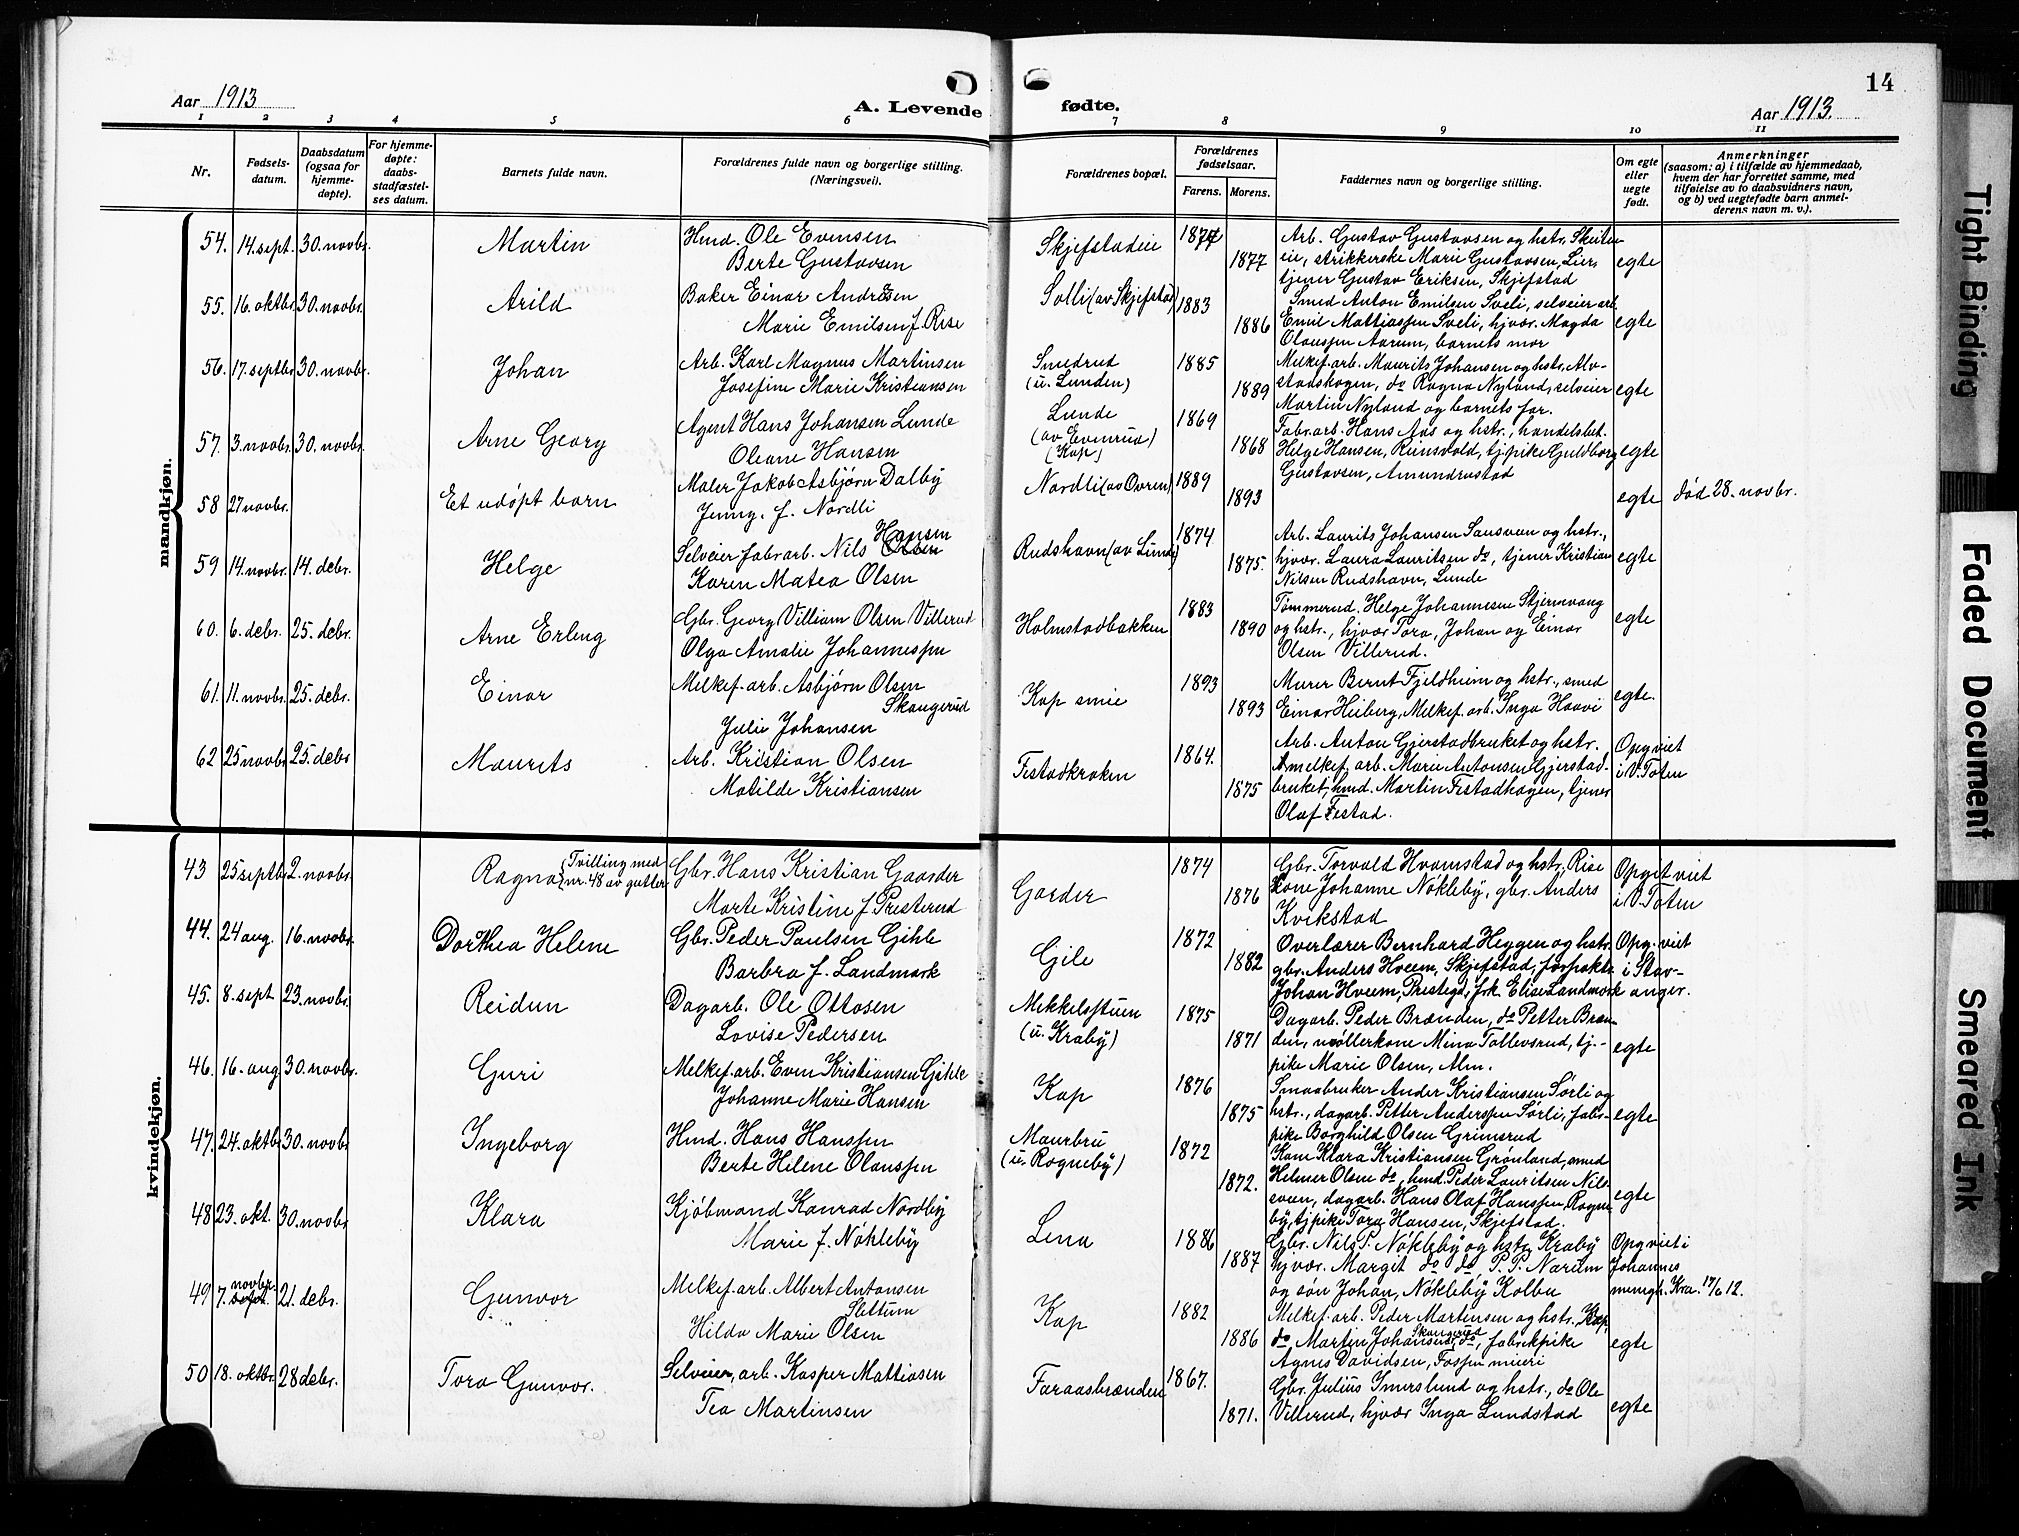 Aar 1913
A. Levende fødte.
Aar 1913.
14
1 2 3 4 5 6 7 8 9 10 11
Nr.
Fødsels-
datum.
Daabsdatum
(ogsaa for
hjemme-
døpte).
For hjemme-
døpte:
daabs-
stadfæstel-
ses datum.
Barnets fulde navn.
Forældrenes fulde navn og borgerlige stilling.
(Næringsvei).
Forældrenes bopæl.
Forældrenes
fødselsaar.
Farens. Morens.
Faddernes navn og borgerlige stilling.
Om egte
eller
uegte
født.
Anmerkninger
(saasom: a) i tilfælde av hjemmedaab,
hvem der har forrettet samme, med
tilføielse av to daabsvidners navn,
og b) ved uegtefødte barn anmel-
derens navn m. v.).
mandkjøn.
54. 14. sept. 30. novbr. Martin
Hmd. Ole Evensen
Berte Gustavsen
Skjefstadeie 1874 1877
Arb. Gustav Gustavsen og hstr. Skiten-
eie, strikkerske Marie Gustavsen, Lier,
tjener Gustav Eriksen, Skjefstad
egte
55. 16. oktbr. 30. novbr. Arild
Baker Einar Andresen
Marie Emilsen f. Rise
Solli (av Skjefstad) 1883 1886
Smed Anton Emilsen Sveli, selveier arb.
Emil Mattiassen Sveli, hjvær. Magda
Olaussen Aarum, barnets mor
egte
56. 17. septbr. 30. novbr. Johan
Arb. Karl Magnus Martinsen
Josefine Marie Kristiansen
Smedrud
(u. Lunden) 1885 1889
Melkef. arb. Maurits Johansen og hstr, Alv-
stadskogen, do Ragna Nyland, selveier
Martin Nyland og barnets far.
egte
57. 3. novbr. 30. novbr. Arne Georg
Agent Hans Johansen Lunde
Oleane Hansen
Lunde
(av Evenrud)
(Kap) 1869 1868
Fabr. arb. Hans Aas og hstr., handelsbet.
Helge Hansen, Reinsvold, tj. pike Guldborg
Gustavsen, Amundrustad
egte
58 27 novbr. Et udøpt barn
Maler Jakob Asbjørn Dalby
Jenny. f. Nordli
Nordli (av Øvren) 1889 1893
egte død 28. novbr.
59 14. novbr. 14. debr. Helge
Selveier fabr. arb. Nils Olsen Hansen
Karen Matea Olsen
Rudshavn (av Lunde) 1874 1875.
Arb. Laurits Johansen Sandsveen og hstr.,
hjvær. Laura Lauritsen do, tjener Kristian
Nilsen Rudshavn, Lunde
egte
60. 6. debr. 25. debr. Arne Erling
Gbr. Georg Villiam Olsen Villerud
Olga Amalie Johannessen
Holmstadbakken 1883 1890
Tømmermd. Helge Johannesen Stjernvang
og hstr., hjvær Tora, Johan og Einar
Olsen Villerud.
egte
61. 11. novbr. 25. debr. Einar
Melkef. arb. Asbjørn Olsen
Skaugerud
Julie Johansen
Kap smie 1893 1893
Murer Bernt Fjeldheim og hstr., smed
Einar Heiberg, Melkef. arb. Inga Haavi
egte.
62 25 novbr 25. debr Maurits
Arb. Kristian Olsen
Matilde Kristiansen
Festadkroken 1864. 1875
Arb. Anton Gjerstadbruket og hstr.
melkef. arb. Marie Antonsen Gjerstad-
bruket, hmd. Martin Festadhagen, tjener
Olaf Festad.
Opg viet
i V. Toten
kvindekjøn.
43 25 septbr 2. novbr. Ragna {Tvilling med
nr. 48 av gutter
Gbr. Hans Kristian Gaarder
Marte Kristine f. Presterud
Gaarder 1874 1876
Gbr. Torvald Hvamstad og hstr, Rise
Kone Johanne Nøkleby, gbr. Anders
Kvikstad
Opgit viet
i V. Toten
44. 24 aug. 16. novbr. Dorthea Helene
Gbr. Peder Paulsen Gihle
Barbra f. Landmark
Gile 1872 1882
Overlærer Bernhard Heggen og hstr
gbr. Anders Hveem, Skjefstad, forpakter
Johan Hveem, Prestegd, frk. Elise Landmark
Opg. viet
i Stav-
anger.
45. 8. sept 23. novbr. Reidun
Dagarb. Ole Ottosen
Lovise Pedersen
Mikkelsstuen
(u. Kraby) 1875 1871
Dagarb. Peder Brænden, do Petter Bræn-
den, møllerkone Mina Tollevsrud, tj.-
pike Marie Olsen, Alm.
egte
46. 16. aug 30. novbr. Guri
Melkef. arb. Even Kristiansen Gihle
Johanne Marie Hansen
Kap 1876 1875
Smaabruker Ander Kristiansen Sørli og
hstr., dagarb. Petter Anderssen Sørli, fabr-
pike Borghild Olsen Grimsrud
egte
47. 24. oktb 30. novbr Ingeborg
Hmd. Hans Hanssen
Berte Helene Olaussen
Maurbru
(u. Rogneby) 1872 1872.
Kone Klara Kristiansen Grønland, smed
Helmer Olsen do, hmd. Peder Lauritsen Nils-
sveen, dagarb. Hans Olaf Hanssen, Rogne-
by, tj. pike Tora Hansen, Skjefstad.
egte
48 23. okt. 30. novbr Klara
Kjøbmand Konrad Nordby
Marie f. Nøkleby
Lena 1886 1887
Gbr. Nils P. Nøkleby og hstr, Kraby
hjvær. Margit do do P. P. Narum
og søn Johan, Nøkleby Kolbu
Opg viet i
Johannes
menigh. Kra. 17/6 12.
49 7. sept. novbr. 21. debr. Gunvor
Melkef. arb. Albert Antonsen
Slettum
Hilda Marie Olsen
Kap 1882 1886
Melkef. arb. Peder Martensen og hstr. Kap,
do, Martin Johansen Skaugerud do, fabrikpike
Agnes Davidsen, Fossenmieri
egte
50 18. oktbr. 28 debr. Tora Gunvor.
Selveier, arb. Kasper Mattiasen
Tea Martinsen
Faraasbrænden 1867. 1871.
Gbr. Julius Smerslund og hstr., do Ole
Villerud, hjvær Inga Lundstad
egte
Tight Binding
Faded Document
Smeared Ink